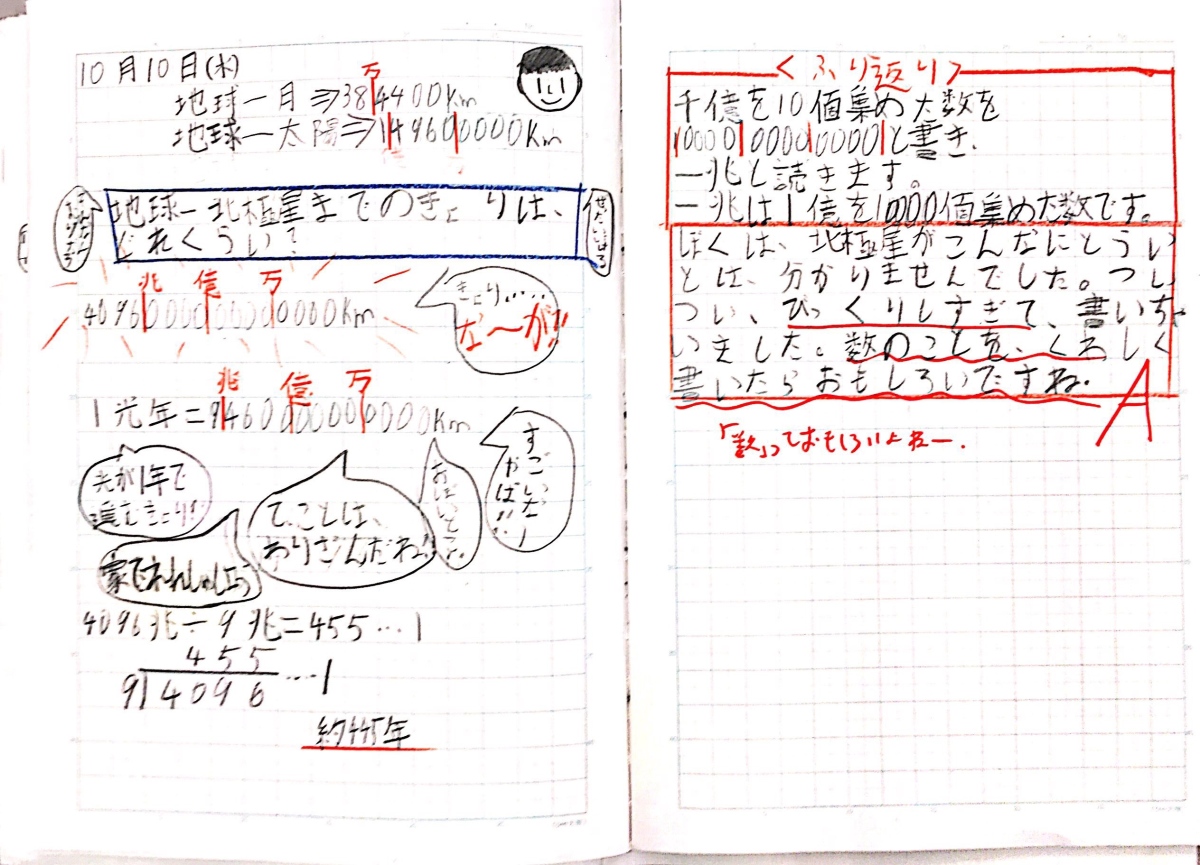 10月10日(水)
万
地球ー月⇒384400Km
地球ー太陽⇒149600000Km
地球ー北極星までのきょりは、
どれくらい?
兆 億 万
4096000000000000Km
きょり……
な〜が!!
兆 億 万
1光年=9460000000000Km
すごいなー
やばい!!
光が1年で
進むきょり!
てことは、
わりざんだね!
4096兆÷9兆=455…1
455…1
9)4096
約445年
<ふり返り>
千億を10個集めた数を
1000000000000と書き、
一兆と読きます。
一兆は1億を10000個集めた数です。
ぼくは、北極星がこんなにとうい
とは、分かりませんでした。つい
つい、びっくりしすぎて、書いちゃ
いました。数のことを、くわしく
書いたらおもしろいですね。
A
「数」っておもしろいよねー.